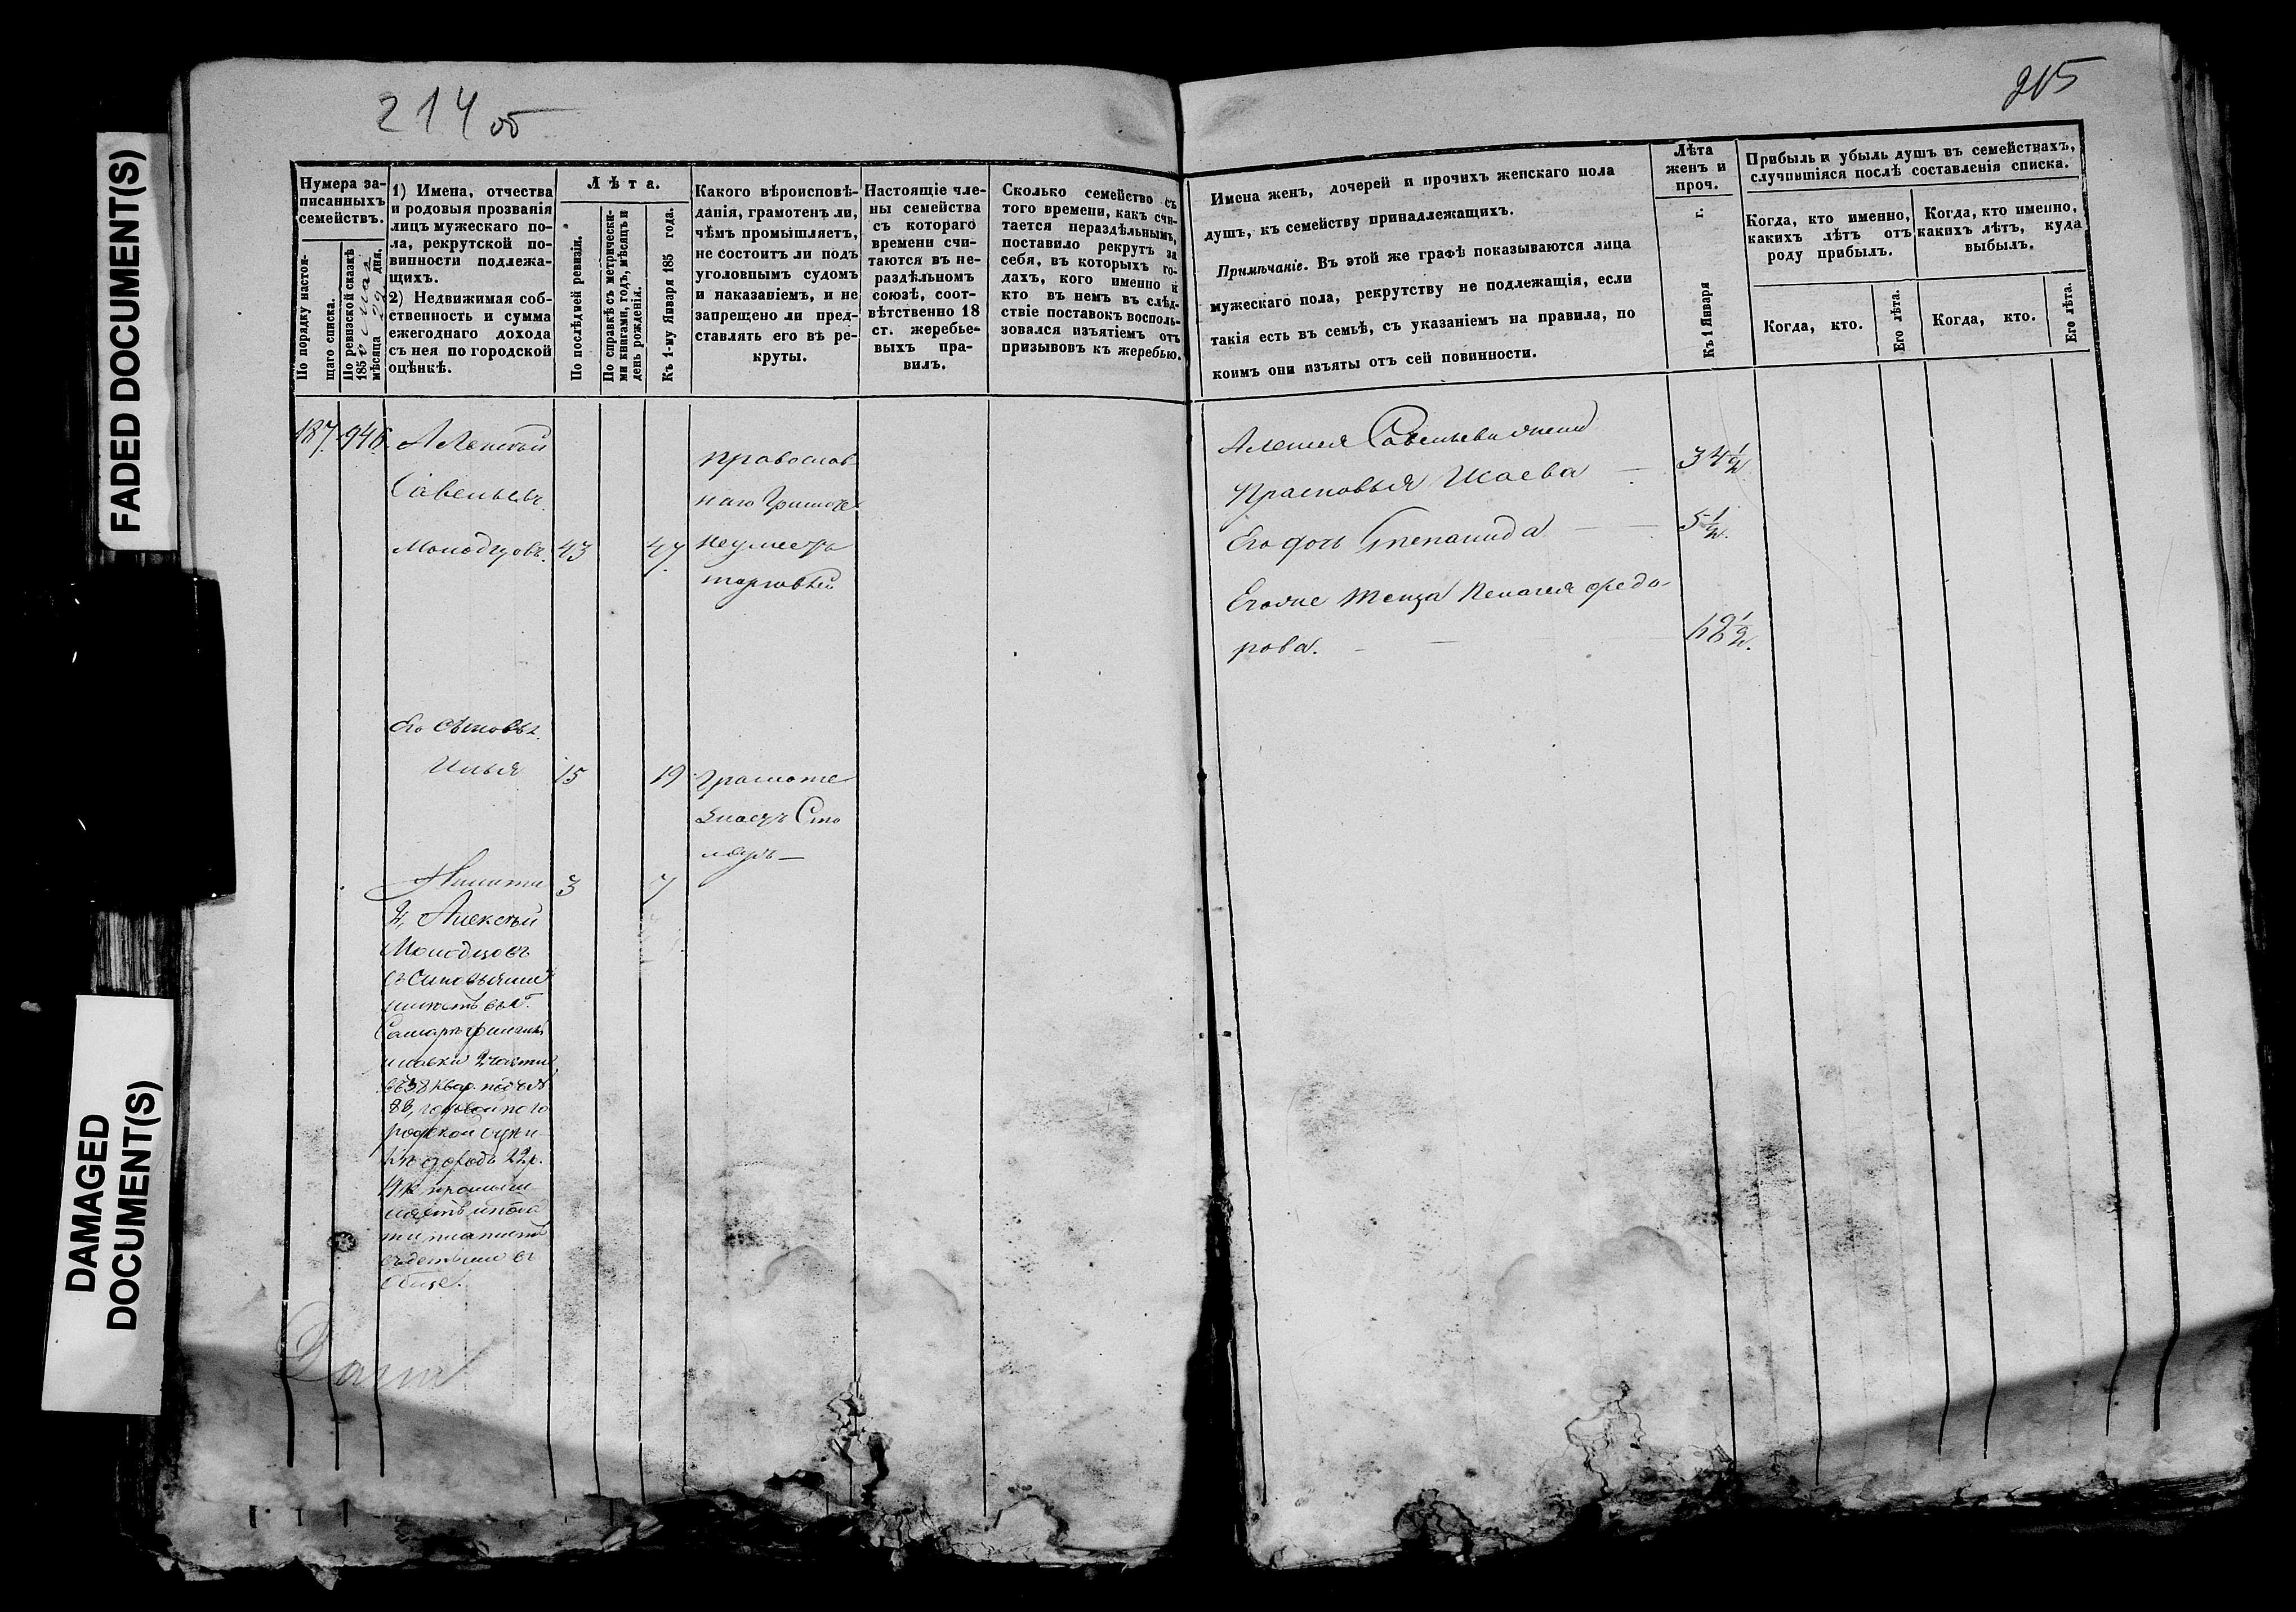 FADED DOCUMENT(S)
DAMAGED
DOCUMENT(S)
214 об
215
Нумера за-
писанныхъ
семействъ.
По порядку настоя-
щаго списка.
По ревизской сказкѣ
185
мѣсяца дня.
1) Имена, отчества
и родовыя прозванія
лицъ мужескаго по-
ла, рекрутской по-
винности подлежа-
щихъ.
2) Недвижимая соб-
ственность и сумма
ежегоднаго дохода
съ нея по городской
оцѣнкѣ.
Лѣта.
По послѣдней ревизіи.
По справкѣ съ метрически-
ми книгами, годъ, мѣсяцъ и
день рожденія.
Къ 1-му Января 185 года.
Какого вѣроисповѣ-
данія, грамотенъ ли,
чѣмъ промышляетъ,
не состоитъ ли подъ
уголовнымъ судомъ
и наказаніемъ, и не
запрещено ли пред-
ставлять его въ ре-
круты.
Настоящіе чле-
ны семейства
съ котораго
времени счи-
таются въ не-
раздѣльномъ
союзѣ, соот-
вѣтственно 18
ст. жеребье-
выхъ пра-
вилъ.
Сколько семейство съ
того времени, какъ счи-
тается нераздѣльнымъ,
поставило рекрутъ за
себя, въ которыхъ го-
дахъ, кого именно и
кто въ немъ въ слѣд-
ствіе поставокъ восполь-
зовался изъятіемъ отъ
призывовъ къ жеребью.
187. 946. Алексѣй
Савельевъ
Молодцовъ. 43 47
православ
наго Грамоте
неумеетъ
торговлей
Его сыновья
Илья 15 19 Грамоте
знаетъ Сто
ляръ —
Никита 3 7
2, Алексѣй
Молодцовъ
съ сыновьями
имеетъ въ г.
Самарѣ
2 части
въ 38 квар. под №
86,
родской оцен
22 р.
съ детьми въ
обще.
Имена женъ, дочерей и прочихъ женскаго пола
душъ, къ семейству принадлежащихъ.
Примѣчаніе. Въ этой же графѣ показываются лица
мужескаго пола, рекрутству не подлежащія, если
такія есть въ семьѣ, съ указаніемъ на правила, по
коимъ они изъяты отъ сей повинности.
Лѣта
женъ и
проч.
Къ 1 Января г.
Прибыль и убыль душъ въ семействахъ,
случившіяся послѣ составленія списка.
Когда, кто именно,
какихъ лѣтъ отъ
роду прибылъ.
Когда, кто именно,
какихъ лѣтъ, куда
выбылъ.
Когда, кто.
Его лѣта.
Когда, кто.
Его лѣта.
Алексея Савельева жена
Прасковья Исаева — 34½
Его дочь Степанида — — 5½.
Его же теща Пелагея Федо-
рова. —